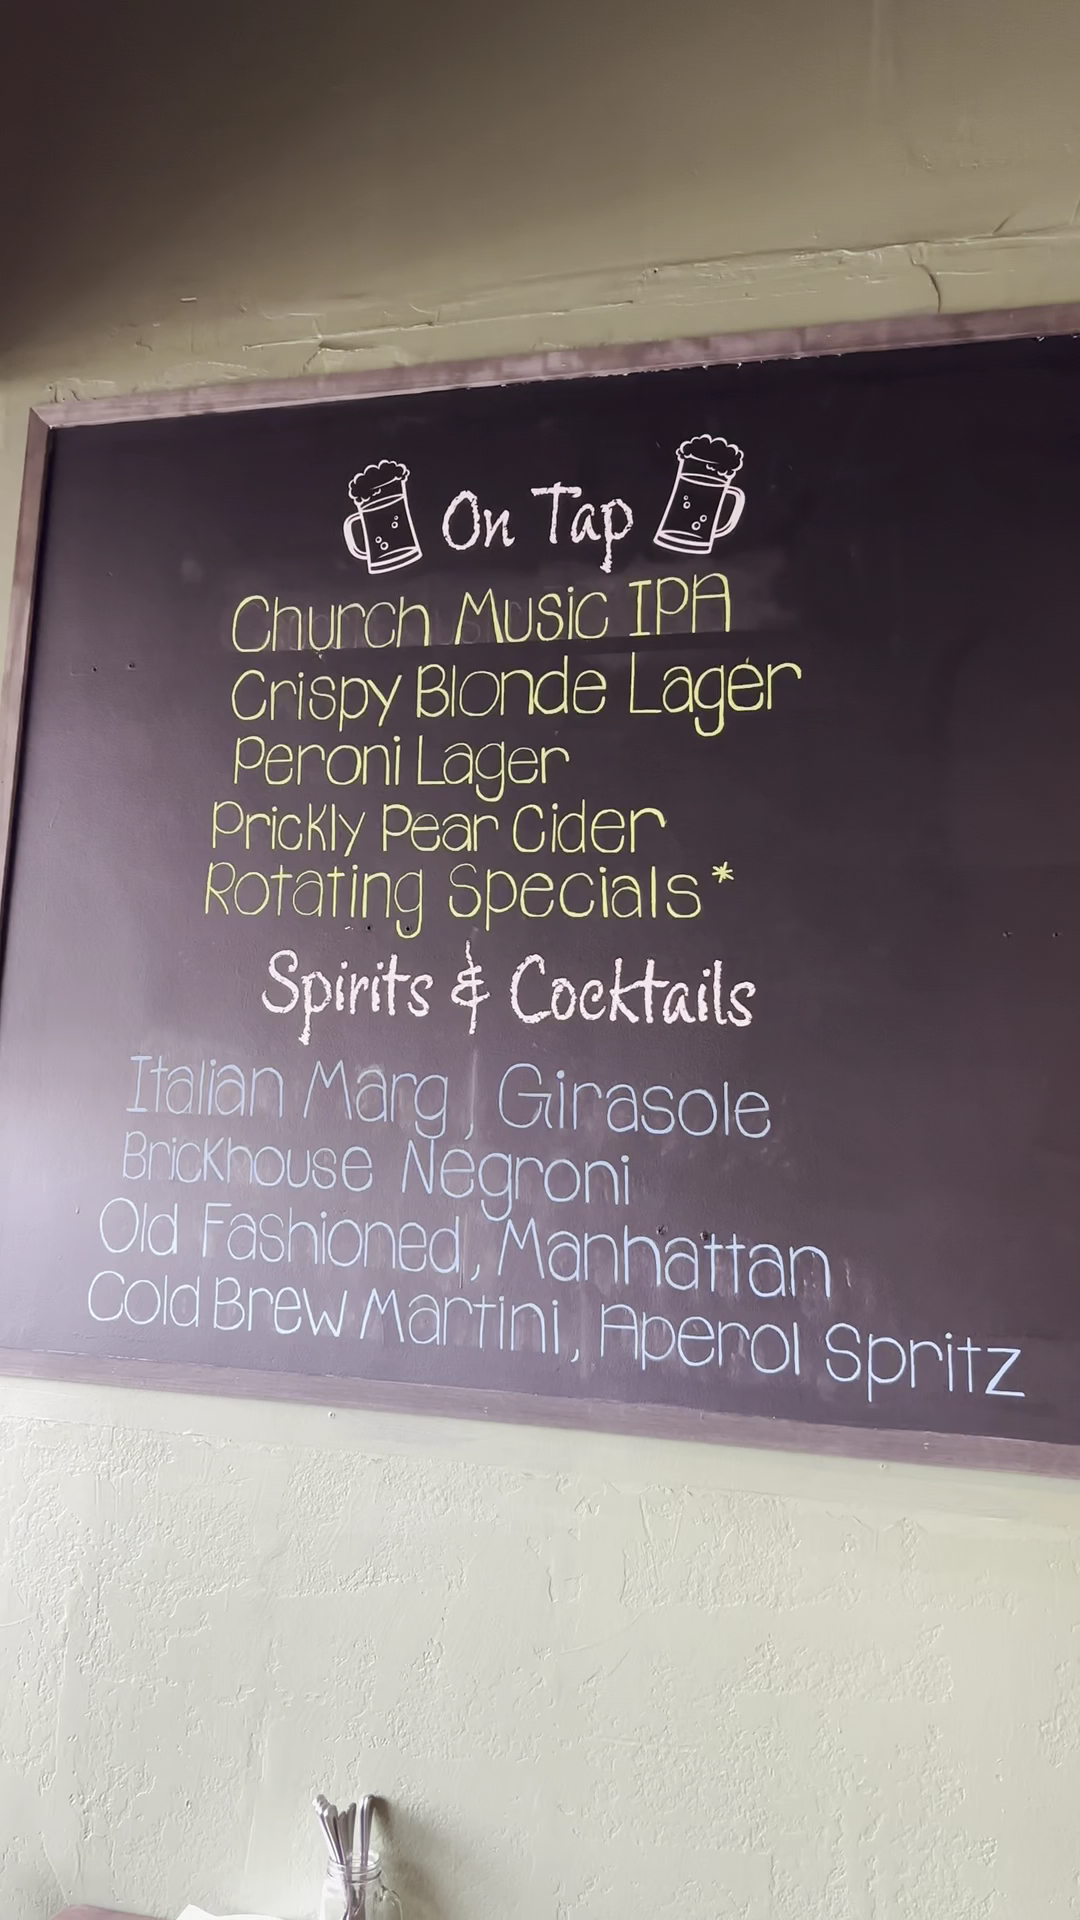 On Tap
Church Music IPA
Crispy Blonde Lager
Peroni Lager
Prickly Pear Cider
Rotating Specials*
Spirits & Cocktails
Italian Marg, Girasole
Brickhouse Negroni
Old Fashioned, Manhattan
Cold Brew Martini, Aperol Spritz